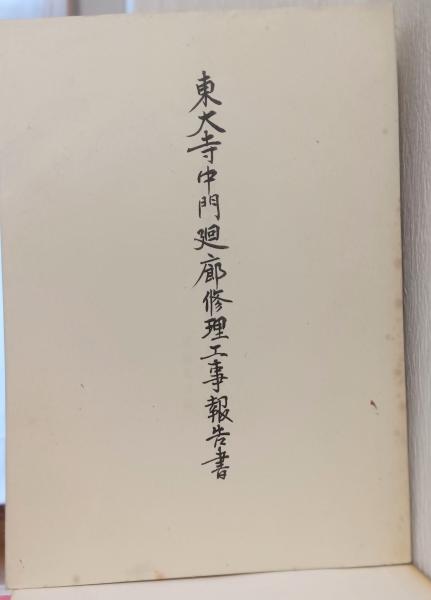 東大寺中門廻廊修理工事報告書